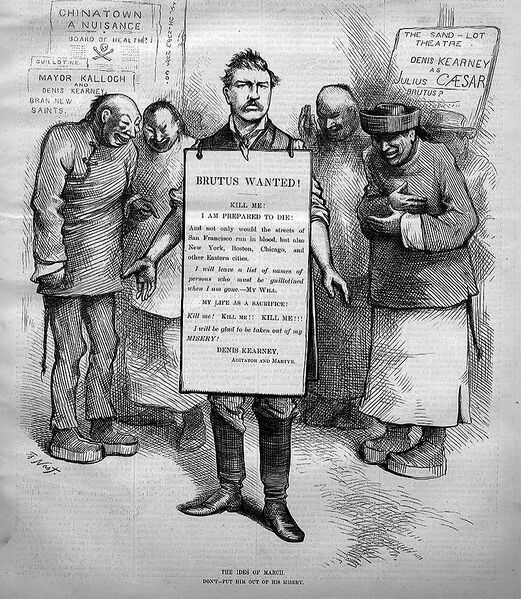 CHINATOWN
A NUISANCE.
BOARD OF HEALTH!
GUILLOTINE.
MAYOR KALLOCH
AND
DENIS KEARNEY.
BRAN NEW
SAINTS.
THE SAND-LOT
THEATRE.
DENIS KEARNEY
AS
JULIUS CÆSAR
BRUTUS?
BRUTUS WANTED!
KILL ME!
I AM PREPARED TO DIE!
And not only would the streets of
San Francisco run in blood, but also
New York, Boston, Chicago, and
other Eastern cities.
I will leave a list of names of
persons who must be guillotined
when I am gone.—MY WILL.
MY LIFE AS A SACRIFICE!
Kill me! KILL ME!! KILL ME!!!
I will be glad to be taken out of my
MISERY?
DENIS KEARNEY,
AGITATOR AND MARTYR.
Th. Nast
THE IDES OF MARCH.
DON'T—PUT HIM OUT OF HIS MISERY.